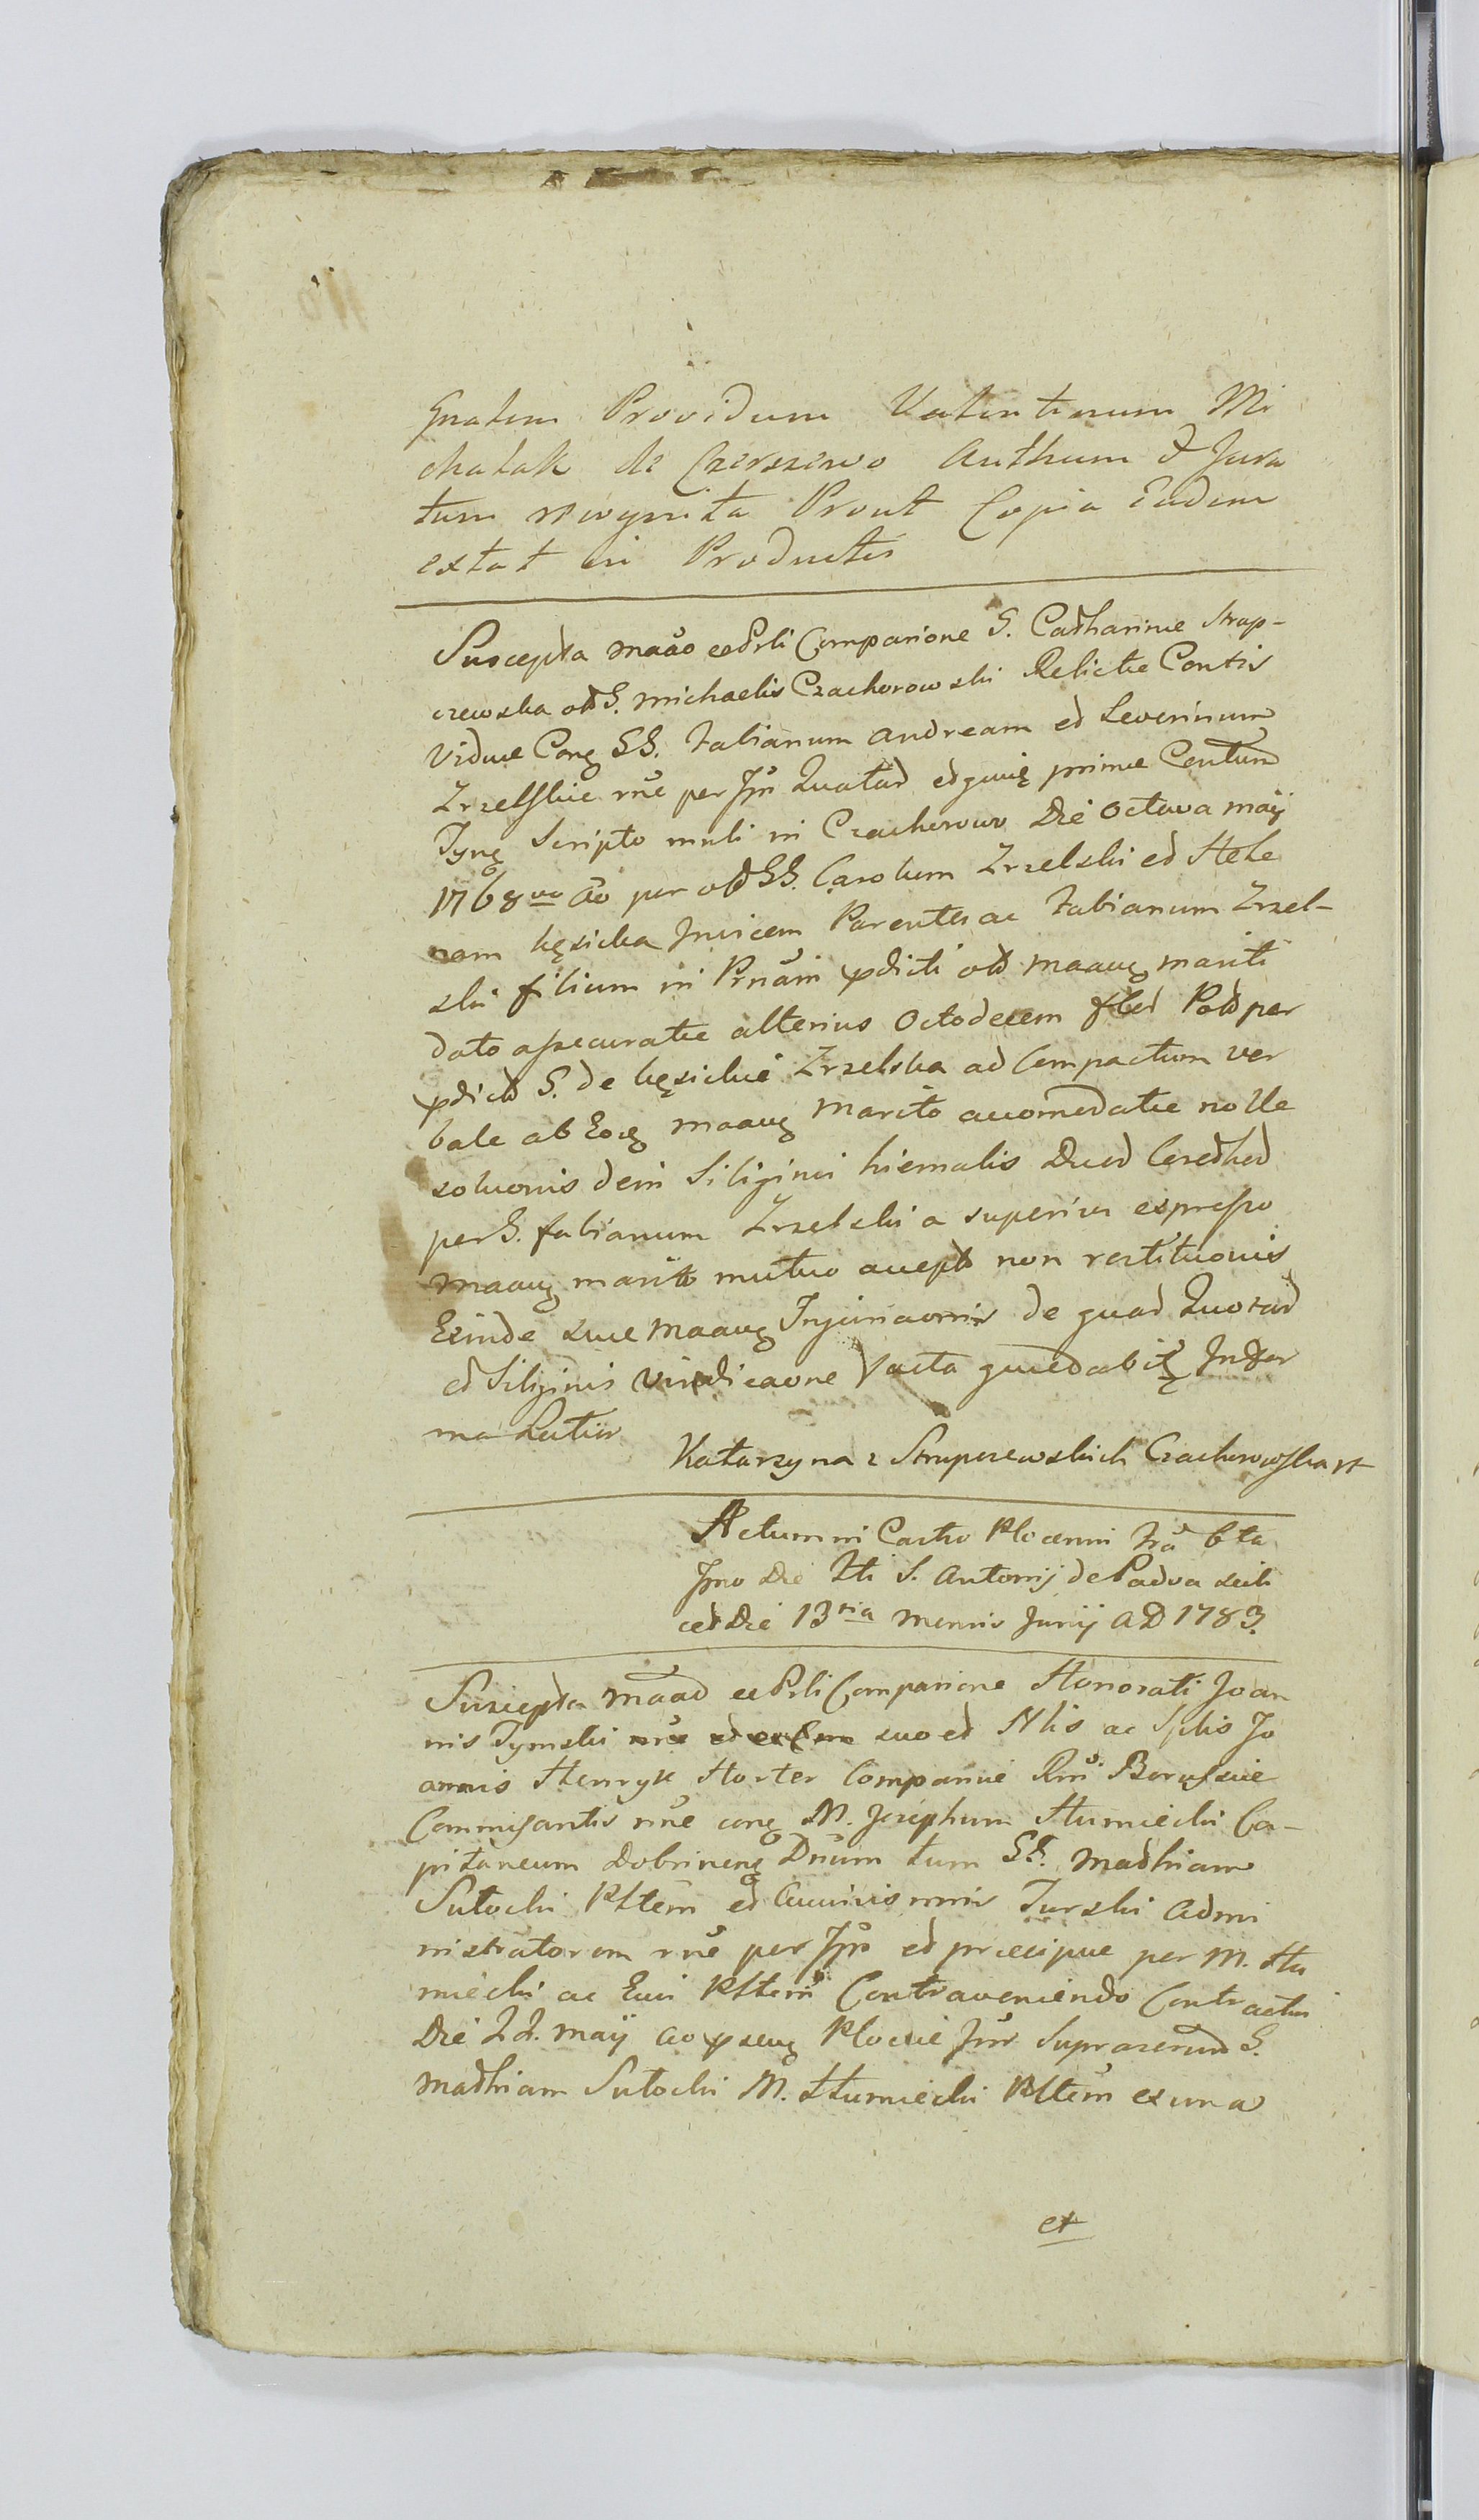 Gnalem Providum Valentinum Mi
chalak de Czerszewo Authum & Jura
tum recognita Prout Copia Eadem
extat in Productis
Suscepta maão eePrli Comparione G. Catharinæ Strup-
czewska olt G. Michaelis Czachorowski Relictæ Contis
Viduæ Conq GG. Fabianum Andream et Severinum
Zrzelskie rñe per Jpñ Quotad et quæ primæ Centum
Tynf Scripto mnli in Czachorowo Die Octava maÿ
1768vo Ao per olt GG. Carolum Zrzelski et Hele
nam Kęsicka Invicem Parentes ac Fabianum Zrzel-
ski filium in Prnãm pdicti olt Maanq mariti
dato assecuratæ alterius Octodecem flet Polt per
pdict G. de Kęsickie Zrzelska ad Compactum ver
bale ab Eoq maanq Marito accomodatæ nolle
soluonis dein Siliginis hiemalis Duod Corethod
per G. fabianum Zrzelski a superius expresso
Maanq marito mutuo accepto non restituonis
Exinde suæ Maanq Injuriaonis de quad Quotad
et Siliginis vindicaone facta quædabitq In for
ma Latiir
Katarzyna z Strupczewskich Czachorowska
Actum in Castro Plocenn Fra 6ta
Jpso Die Fti S. Antonij de Padua scili
cet Die 13tia Mensis Junÿ AD 1783.
Suscepta Maaõ eePrli Comparione Honorati Joan
nis Tymski suo et Nlis ac Splis Jo
annis Henryk Horter Companiæ Rm Borussiæ
Commissantis rñe conq M. Josephum Humiecki Ca-
pitaneum Dobrinenq Dnum tum GG. Mathiam
Sutocki Plltem et Turski Admi
nistratorem rñe per Jpñ et præcipue per M. Hu
miecki ac Eius Plltem Contraveniendo Contractui
Die 22. maÿ ao pseng Plociæ Jnr Suprascrum G.
Mathiam Sutocki M. Humiecki Plltem ex una
et